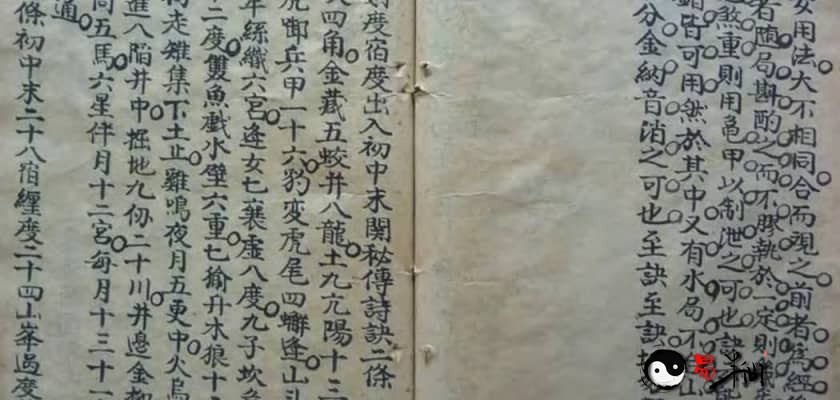 用法大不相同合而观之前者為經
者随局斟酌之而不膠執於一定則
煞重則用亀甲以制泄之可也訣
皆可用然於其中又有水局不山
分金納音消之可也至訣至訣
度宿度出入初中末関秘傳詩訣二條
四角金藏五蛟井八龍土九亢陽十三
虎啣兵甲一十六豹変虎尾四獬逢山斗
年絲織六宮逢女七襄虚八度九子坎
二度䨇魚戯水壁六重七偷升木狼十
走雉集下土止雞鳴夜月五更中火烏
進八陷井中掘地九仞二十川井邊金柳
同五馬六星伴月十二宮每月十三十一
通
條初中末二十八宿纏度二十四山峯過度
易